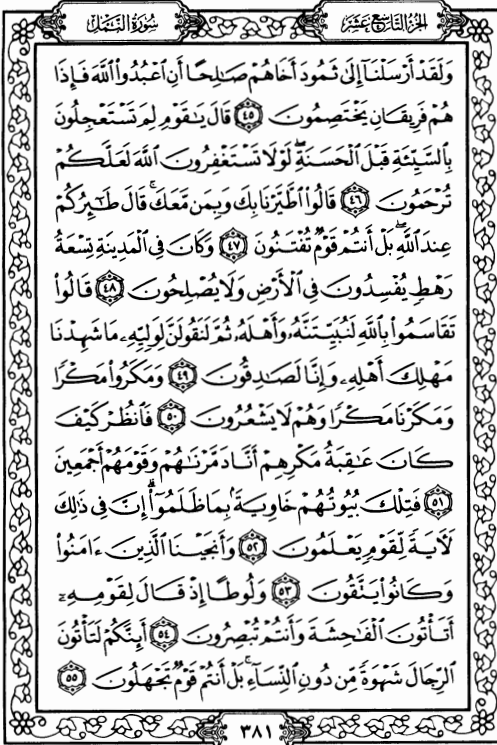 سُورَةُ النَّمْلِ الجُزْءُ التَّاسِعَ عَشَرَ
وَلَقَدْ أَرْسَلْنَآ إِلَىٰ ثَمُودَ أَخَاهُمْ صَٰلِحًا أَنِ ٱعْبُدُوا۟ ٱللَّهَ فَإِذَا
هُمْ فَرِيقَانِ يَخْتَصِمُونَ ٤٥ قَالَ يَٰقَوْمِ لِمَ تَسْتَعْجِلُونَ
بِٱلسَّيِّئَةِ قَبْلَ ٱلْحَسَنَةِ ۖ لَوْلَا تَسْتَغْفِرُونَ ٱللَّهَ لَعَلَّكُمْ
تُرْحَمُونَ ٤٦ قَالُوا۟ ٱطَّيَّرْنَا بِكَ وَبِمَن مَّعَكَ ۚ قَالَ طَٰٓئِرُكُمْ
عِندَ ٱللَّهِ ۖ بَلْ أَنتُمْ قَوْمٌ تُفْتَنُونَ ٤٧ وَكَانَ فِى ٱلْمَدِينَةِ تِسْعَةُ
رَهْطٍ يُفْسِدُونَ فِى ٱلْأَرْضِ وَلَا يُصْلِحُونَ ٤٨ قَالُوا۟
تَقَاسَمُوا۟ بِٱللَّهِ لَنُبَيِّتَنَّهُۥ وَأَهْلَهُۥ ثُمَّ لَنَقُولَنَّ لِوَلِيِّهِۦ مَا شَهِدْنَا
مَهْلِكَ أَهْلِهِۦ وَإِنَّا لَصَٰدِقُونَ ٤٩ وَمَكَرُوا۟ مَكْرًا
وَمَكَرْنَا مَكْرًا وَهُمْ لَا يَشْعُرُونَ ٥٠ فَٱنظُرْ كَيْفَ
كَانَ عَٰقِبَةُ مَكْرِهِمْ أَنَّا دَمَّرْنَٰهُمْ وَقَوْمَهُمْ أَجْمَعِينَ
٥١ فَتِلْكَ بُيُوتُهُمْ خَاوِيَةًۢ بِمَا ظَلَمُوٓا۟ ۗ إِنَّ فِى ذَٰلِكَ
لَءَايَةً لِّقَوْمٍ يَعْلَمُونَ ٥٢ وَأَنجَيْنَا ٱلَّذِينَ ءَامَنُوا۟
وَكَانُوا۟ يَتَّقُونَ ٥٣ وَلُوطًا إِذْ قَالَ لِقَوْمِهِۦٓ
أَتَأْتُونَ ٱلْفَٰحِشَةَ وَأَنتُمْ تُبْصِرُونَ ٥٤ أَئِنَّكُمْ لَتَأْتُونَ
ٱلرِّجَالَ شَهْوَةً مِّن دُونِ ٱلنِّسَآءِ ۚ بَلْ أَنتُمْ قَوْمٌ تَجْهَلُونَ ٥٥
٣٨١